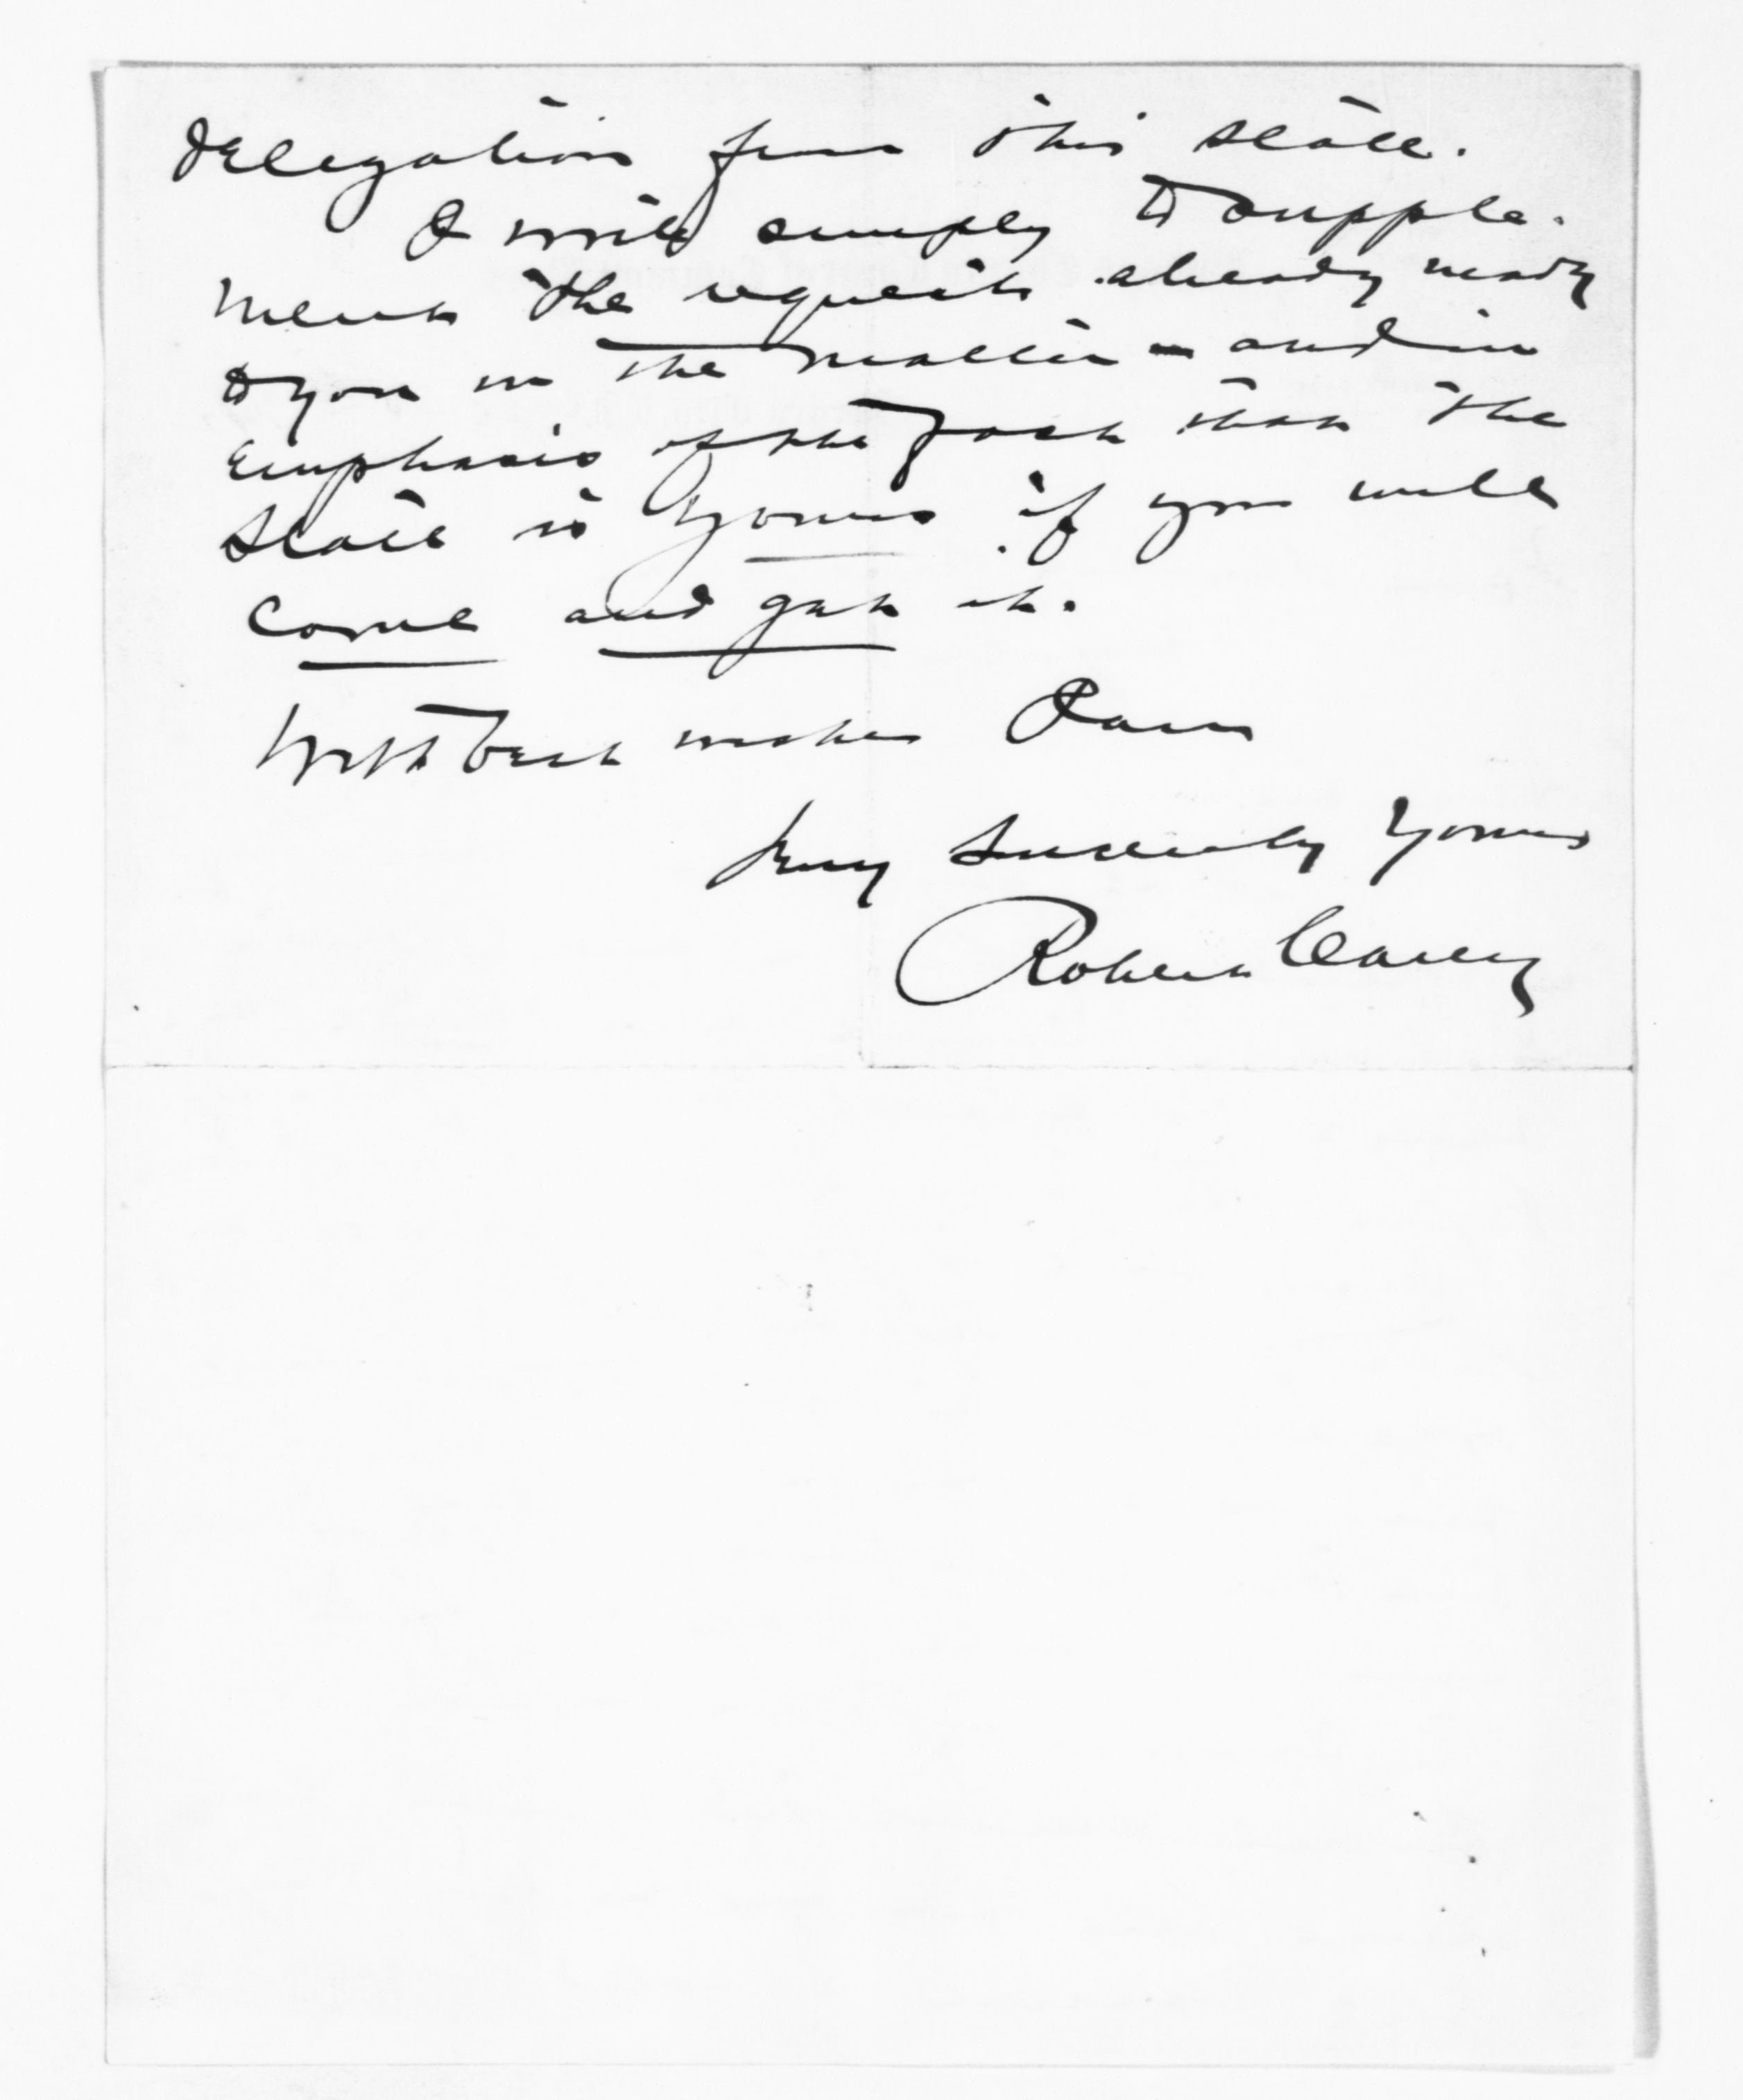 delegation from this state.
I write simply to supple-
ment the requests already made
to you in the matter - and in
emphasis of the fact that the
State is yours if you will
come and get it.
With best wishes I am
Very Sincerely Yours
Robert Carey